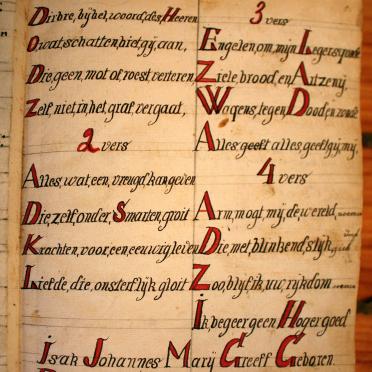 Dirbre, bijbel, woord, des, Heeren
O, wat, schatten, biet, gij, aan,
Die, geen, mot, of, roest, verteren,
Zelf, niet, in, het, graf, vergaat,
2 vers
Alles, wat, een, vreugd, kan geven
Die, zelf, onder, Smarten, groit
Krachten, voor, een, eeuwig leven
Liefde, die, onsterflijk, gloit
3 vers
Engelen, om, mijn, Leger
Ziele, brood, en, Artzenij,
Wapens, tegen, Dood, en, zonde
Alles, geeft, alles, geeft, gij, mij,
4 vers
Arm, mogt, mij, de, wereld,
Die, met, blinkend, slijk,
Zoo, blijf, ik, uw, rijkdom
Ik, begeer, geen, Hoger goed
Isak Johannes Marij Greeff Geboren